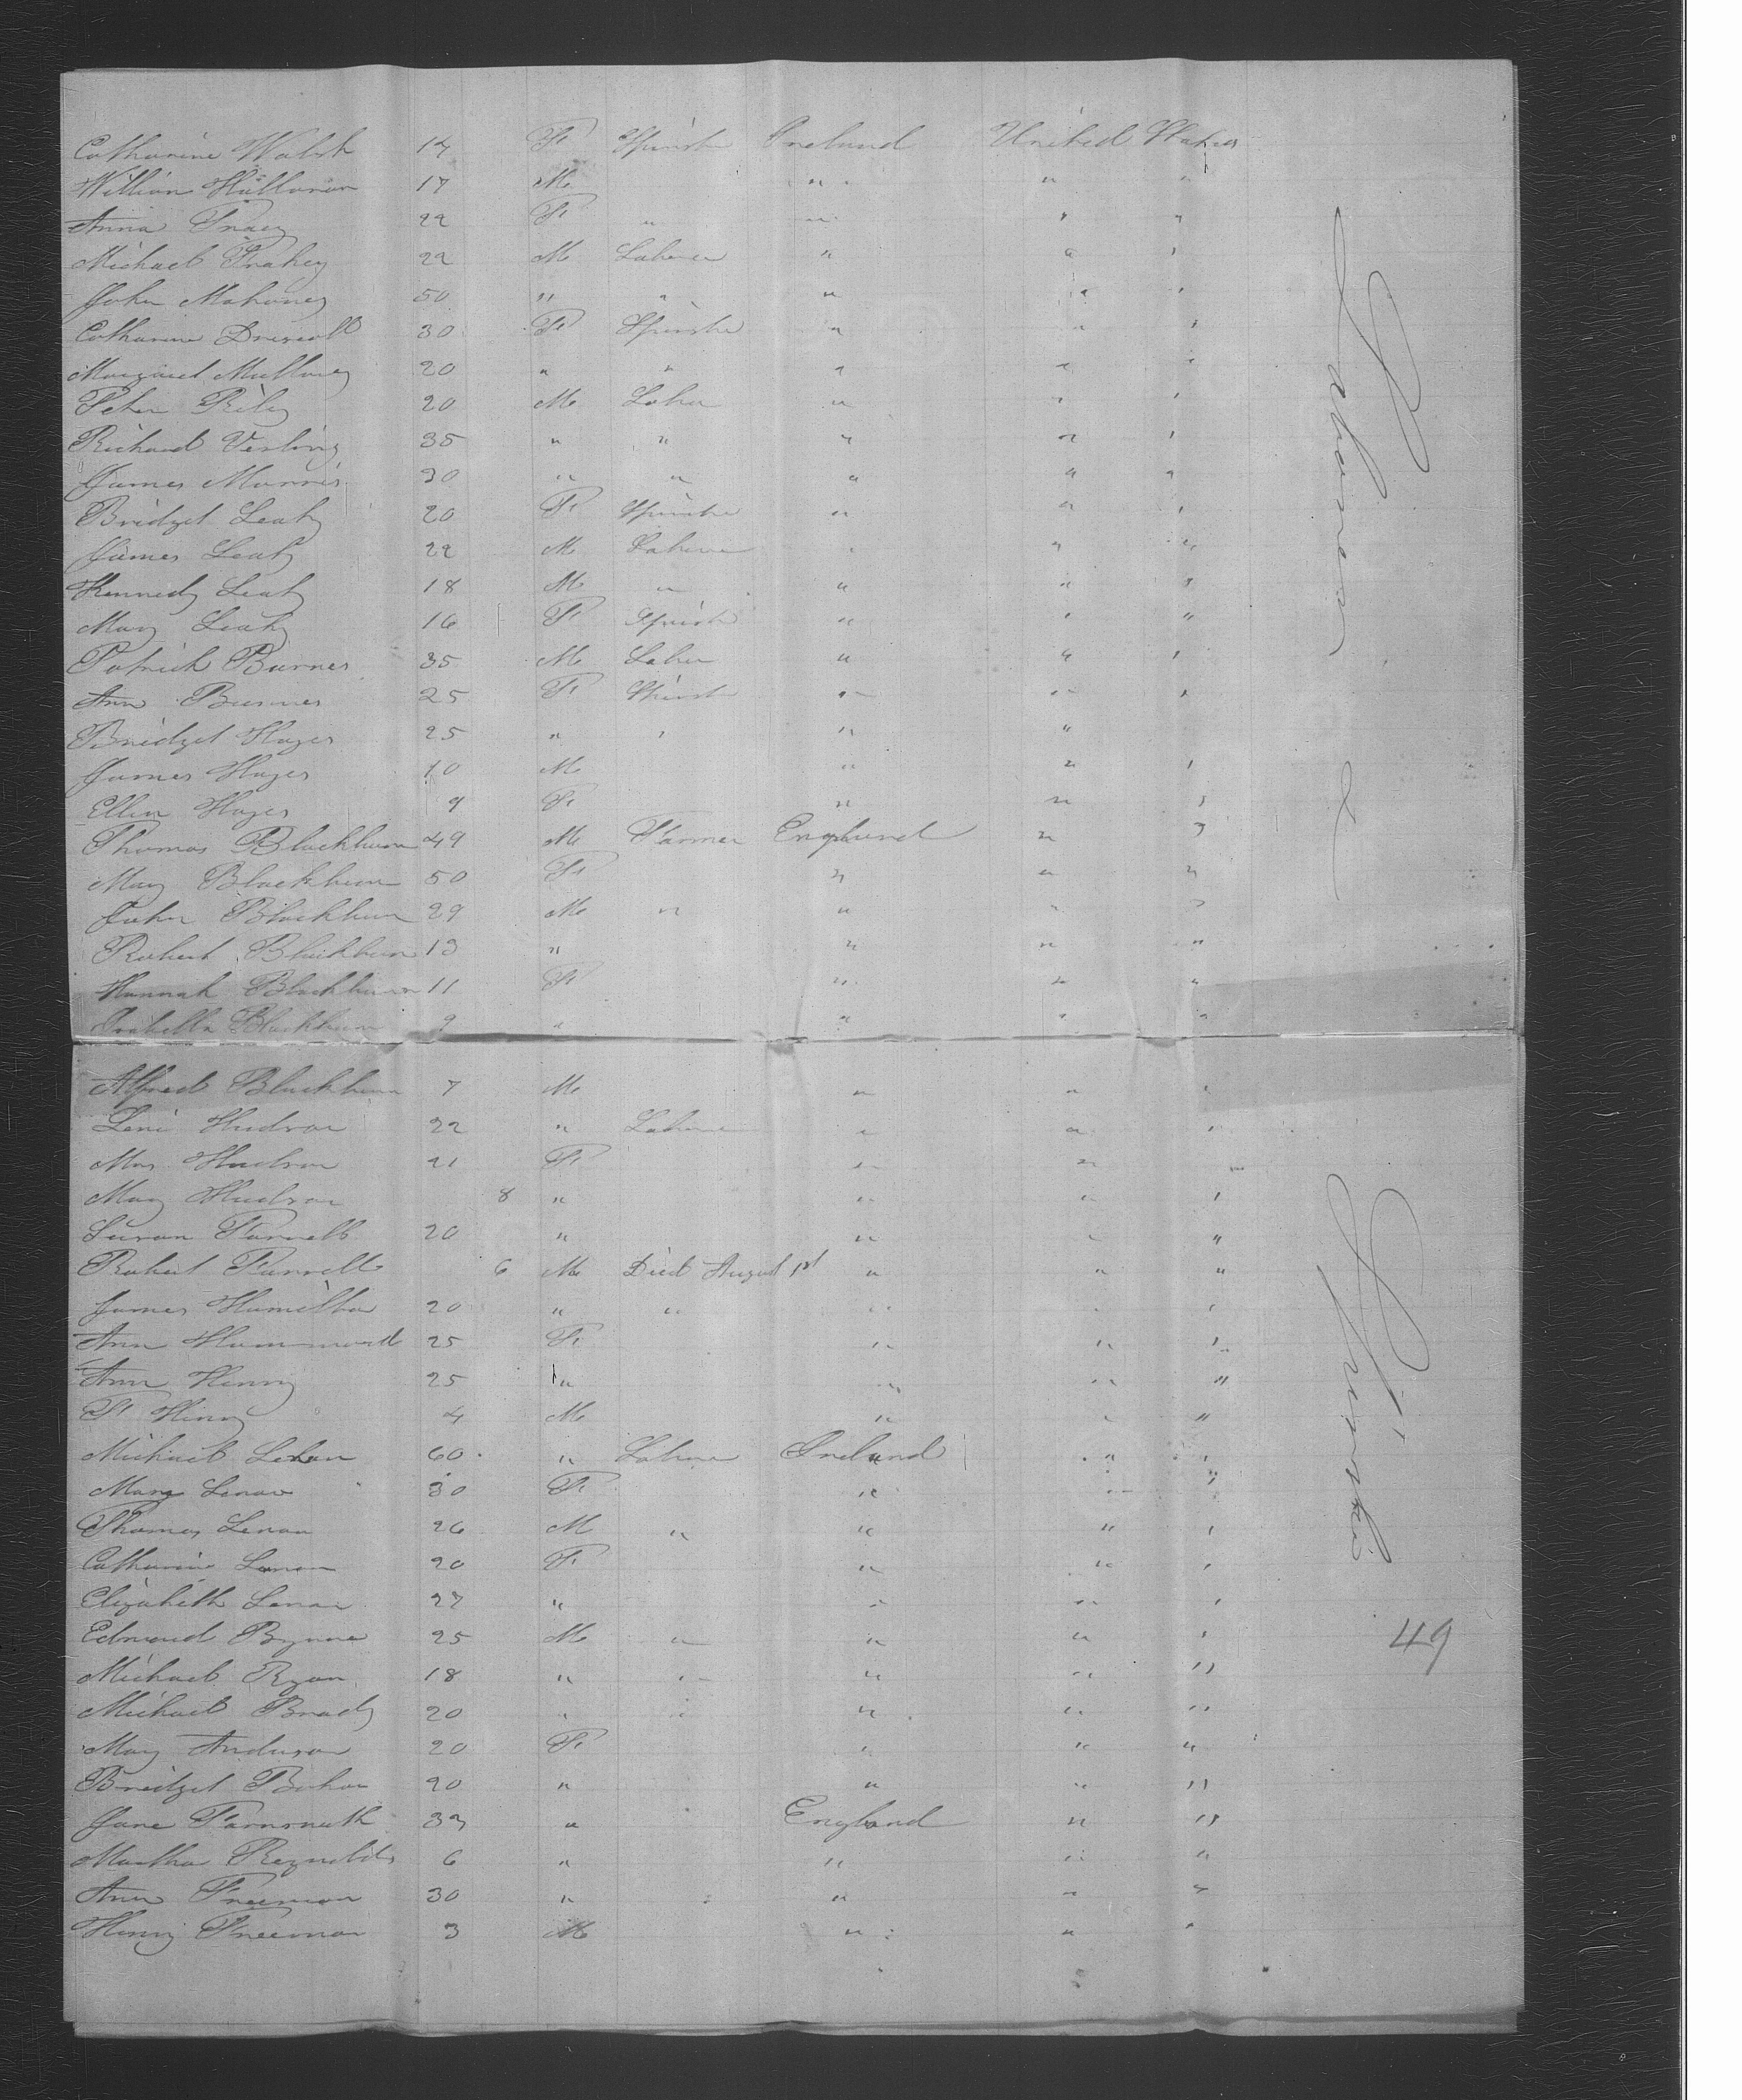 Catharine Walsh 14 F Spinster Ireland United States
William Halloran 17 M " " "
Anna Tracy 22 F " " " "
Michael Frahey 22 M Laborer " " "
John Mahoney 50 " " " " "
Catharine Driscoll 30 F Spinster " " "
Margaret Mullowy 20 " " " " "
Peter Riley 20 M Labor " " "
Richard Verling 35 " " " " "
James Morris 30 " " " " "
Bridget Leahy 20 F Spinster " " "
James Leahy 22 M Laborer " " "
Kennedy Leahy 18 M " " " "
Mary Leahy 16 F Spinster " " "
Patrick Burnes 35 M Labor " " "
Ann Burnes 25 F Spinster " " "
Bridget Hayes 25 " " " "
James Hayes 10 M " " "
Ellen Hayes 9 F " " "
Thomas Blackburn 49 M Farmer England " "
Mary Blackburn 50 F " " "
John Blackburn 29 M " " " "
Robert Blackburn 13 " " " "
Hannah Blackburn 11 F " " "
Isabella Blackburn 9 " " " "
Alfred Blackburn 7 M " " "
Levi Hudson 22 " Laborer " " "
Mrs Hudson 21 F " " "
Mary Hudson 8 " " " "
Susan Farrell 20 " " " "
Robert Farrell 6 M Died August 1st " " "
James Hamilton 20 " " " " "
Ann Hammond 25 F " " "
Ann Henry 25 " " " "
F Henry 4 M " " "
Michael Lenan 60 " Laborer Ireland " "
Mary Lenan 30 F " " "
Thomas Lenan 26 M " " " "
Catharine Lenan 20 F " " "
Elizabeth Lenan 27 " " " "
Edmund Byrne 25 M " " " "
Michael Ryan 18 " " " " "
Michael Brady 20 " " " " "
Mary Anderson 20 F " " "
Bridget Bohan 20 " " " "
Jane Farnsnuth 33 " England " "
Martha Reynolds 6 " " " "
Ann Freeman 30 " " " "
Henry Freeman 3 M " " "
Laborer
&
Spinster
49